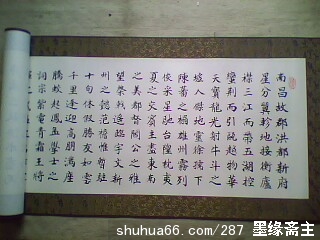 南昌故郡洪都新府
星分翼軫地接衡廬
襟三江而帶五湖控
蠻荊而引甌越物華
天寶龍光射牛斗之
墟人傑地靈徐孺下
陳蕃之榻雄州霧列
俊采星馳台隍枕夷
夏之交賓主盡東南
之美都督閻公之雅
望棨戟遙臨宇文新
州之懿范襜帷暫駐
十旬休假勝友如雲
千里逢迎高朋滿座
騰蛟起鳳孟學士之
詞宗紫電青霜王將
shuhua66.com/287 墨缘斋主